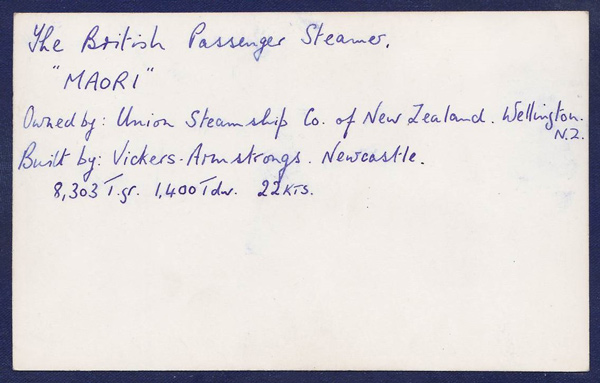 The British Passenger Steamer.
"MAORI"
Owned by: Union Steamship Co. of New Zealand. Wellington.
N.Z.
Built by: Vickers-Armstrongs. Newcastle.
8,303 T.gr. 1,400 Tdw. 22 KTS.